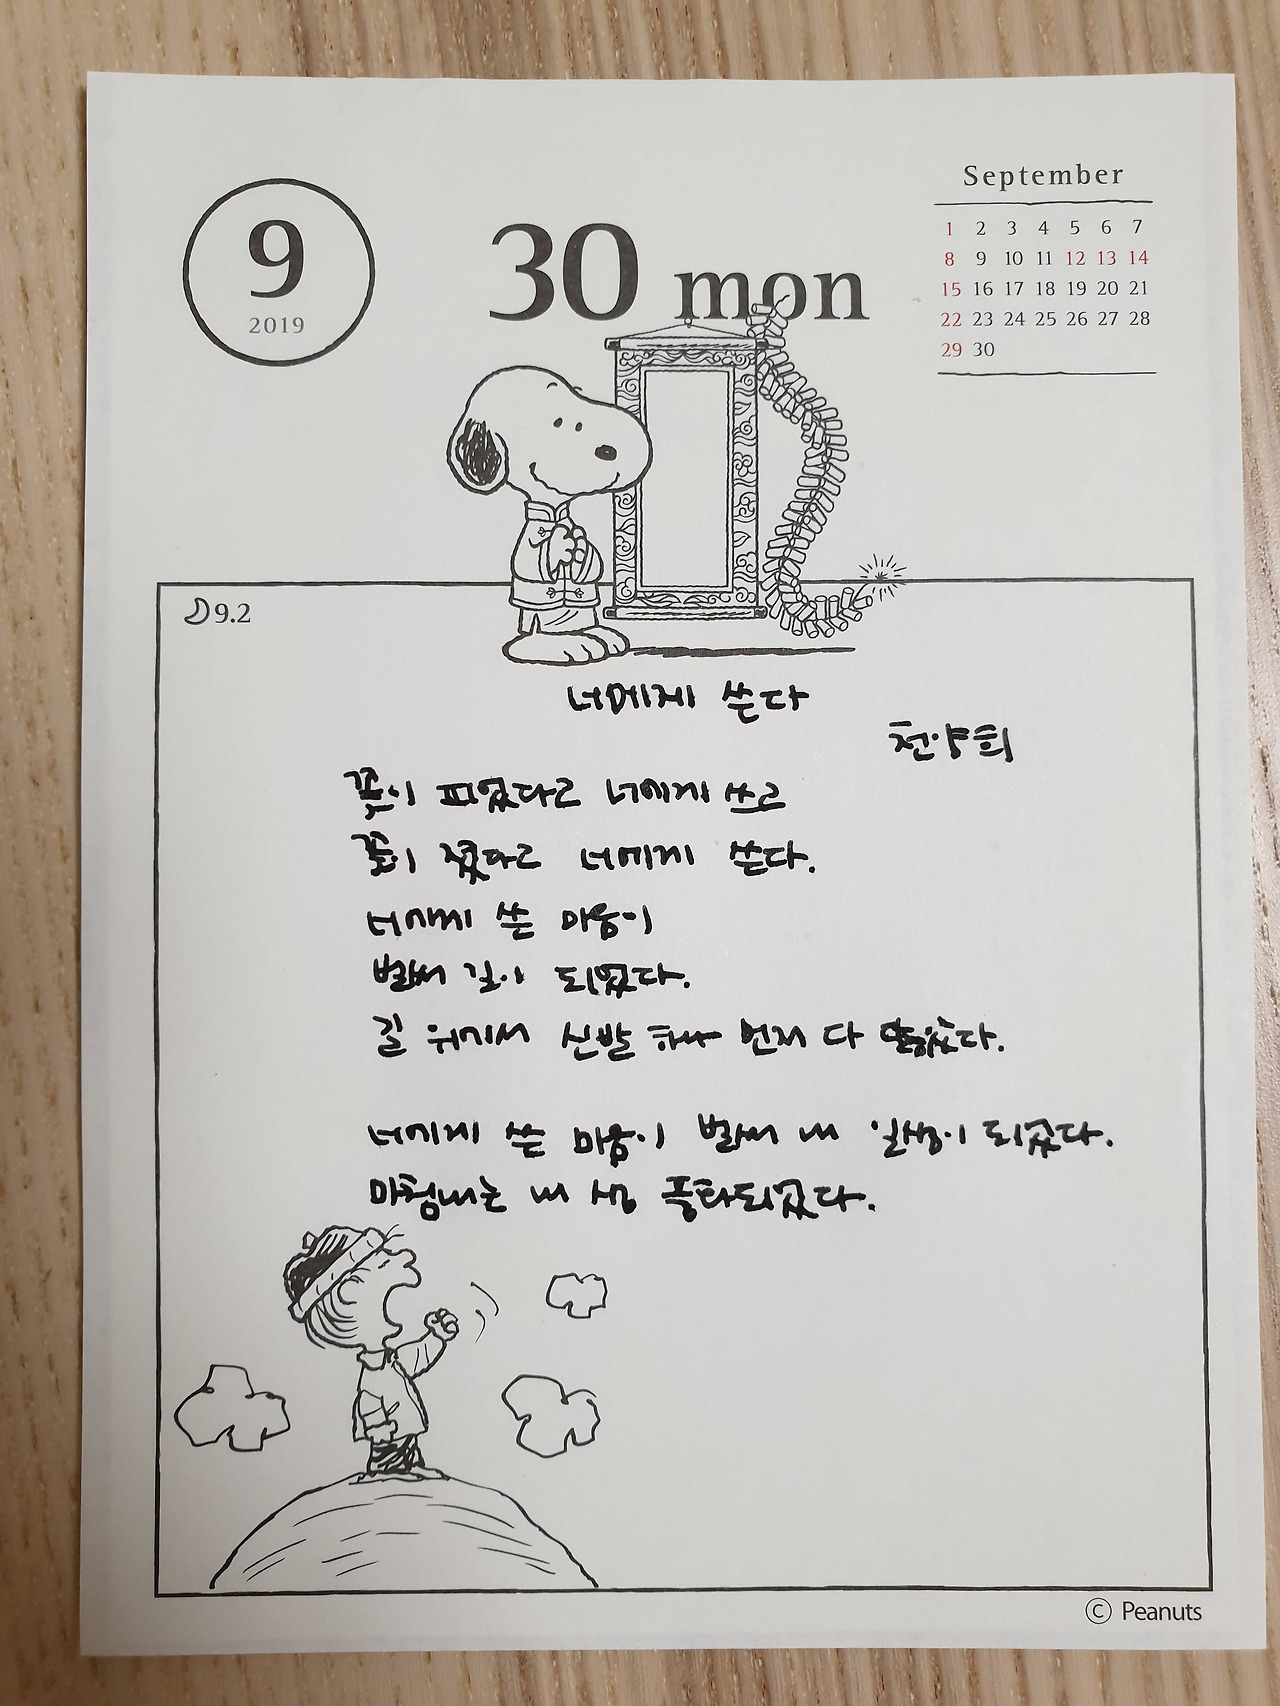 9
2019
30 mon
September
1 2 3 4 5 6 7
8 9 10 11 12 13 14
15 16 17 18 19 20 21
22 23 24 25 26 27 28
29 30
9.2
너에게 쓴다
천양희
꽃이 피었다고 너에게 쓰고
꽃이 졌다고 너에게 쓴다.
너에게 쓴 마음이
벌써 길이 되었다.
길 위에서 신발 하나 먼저 다 닳았다.
너에게 쓴 마음이 벌써 내 일생이 되었다.
마침내는 내 생 풍화되었다.
© Peanuts